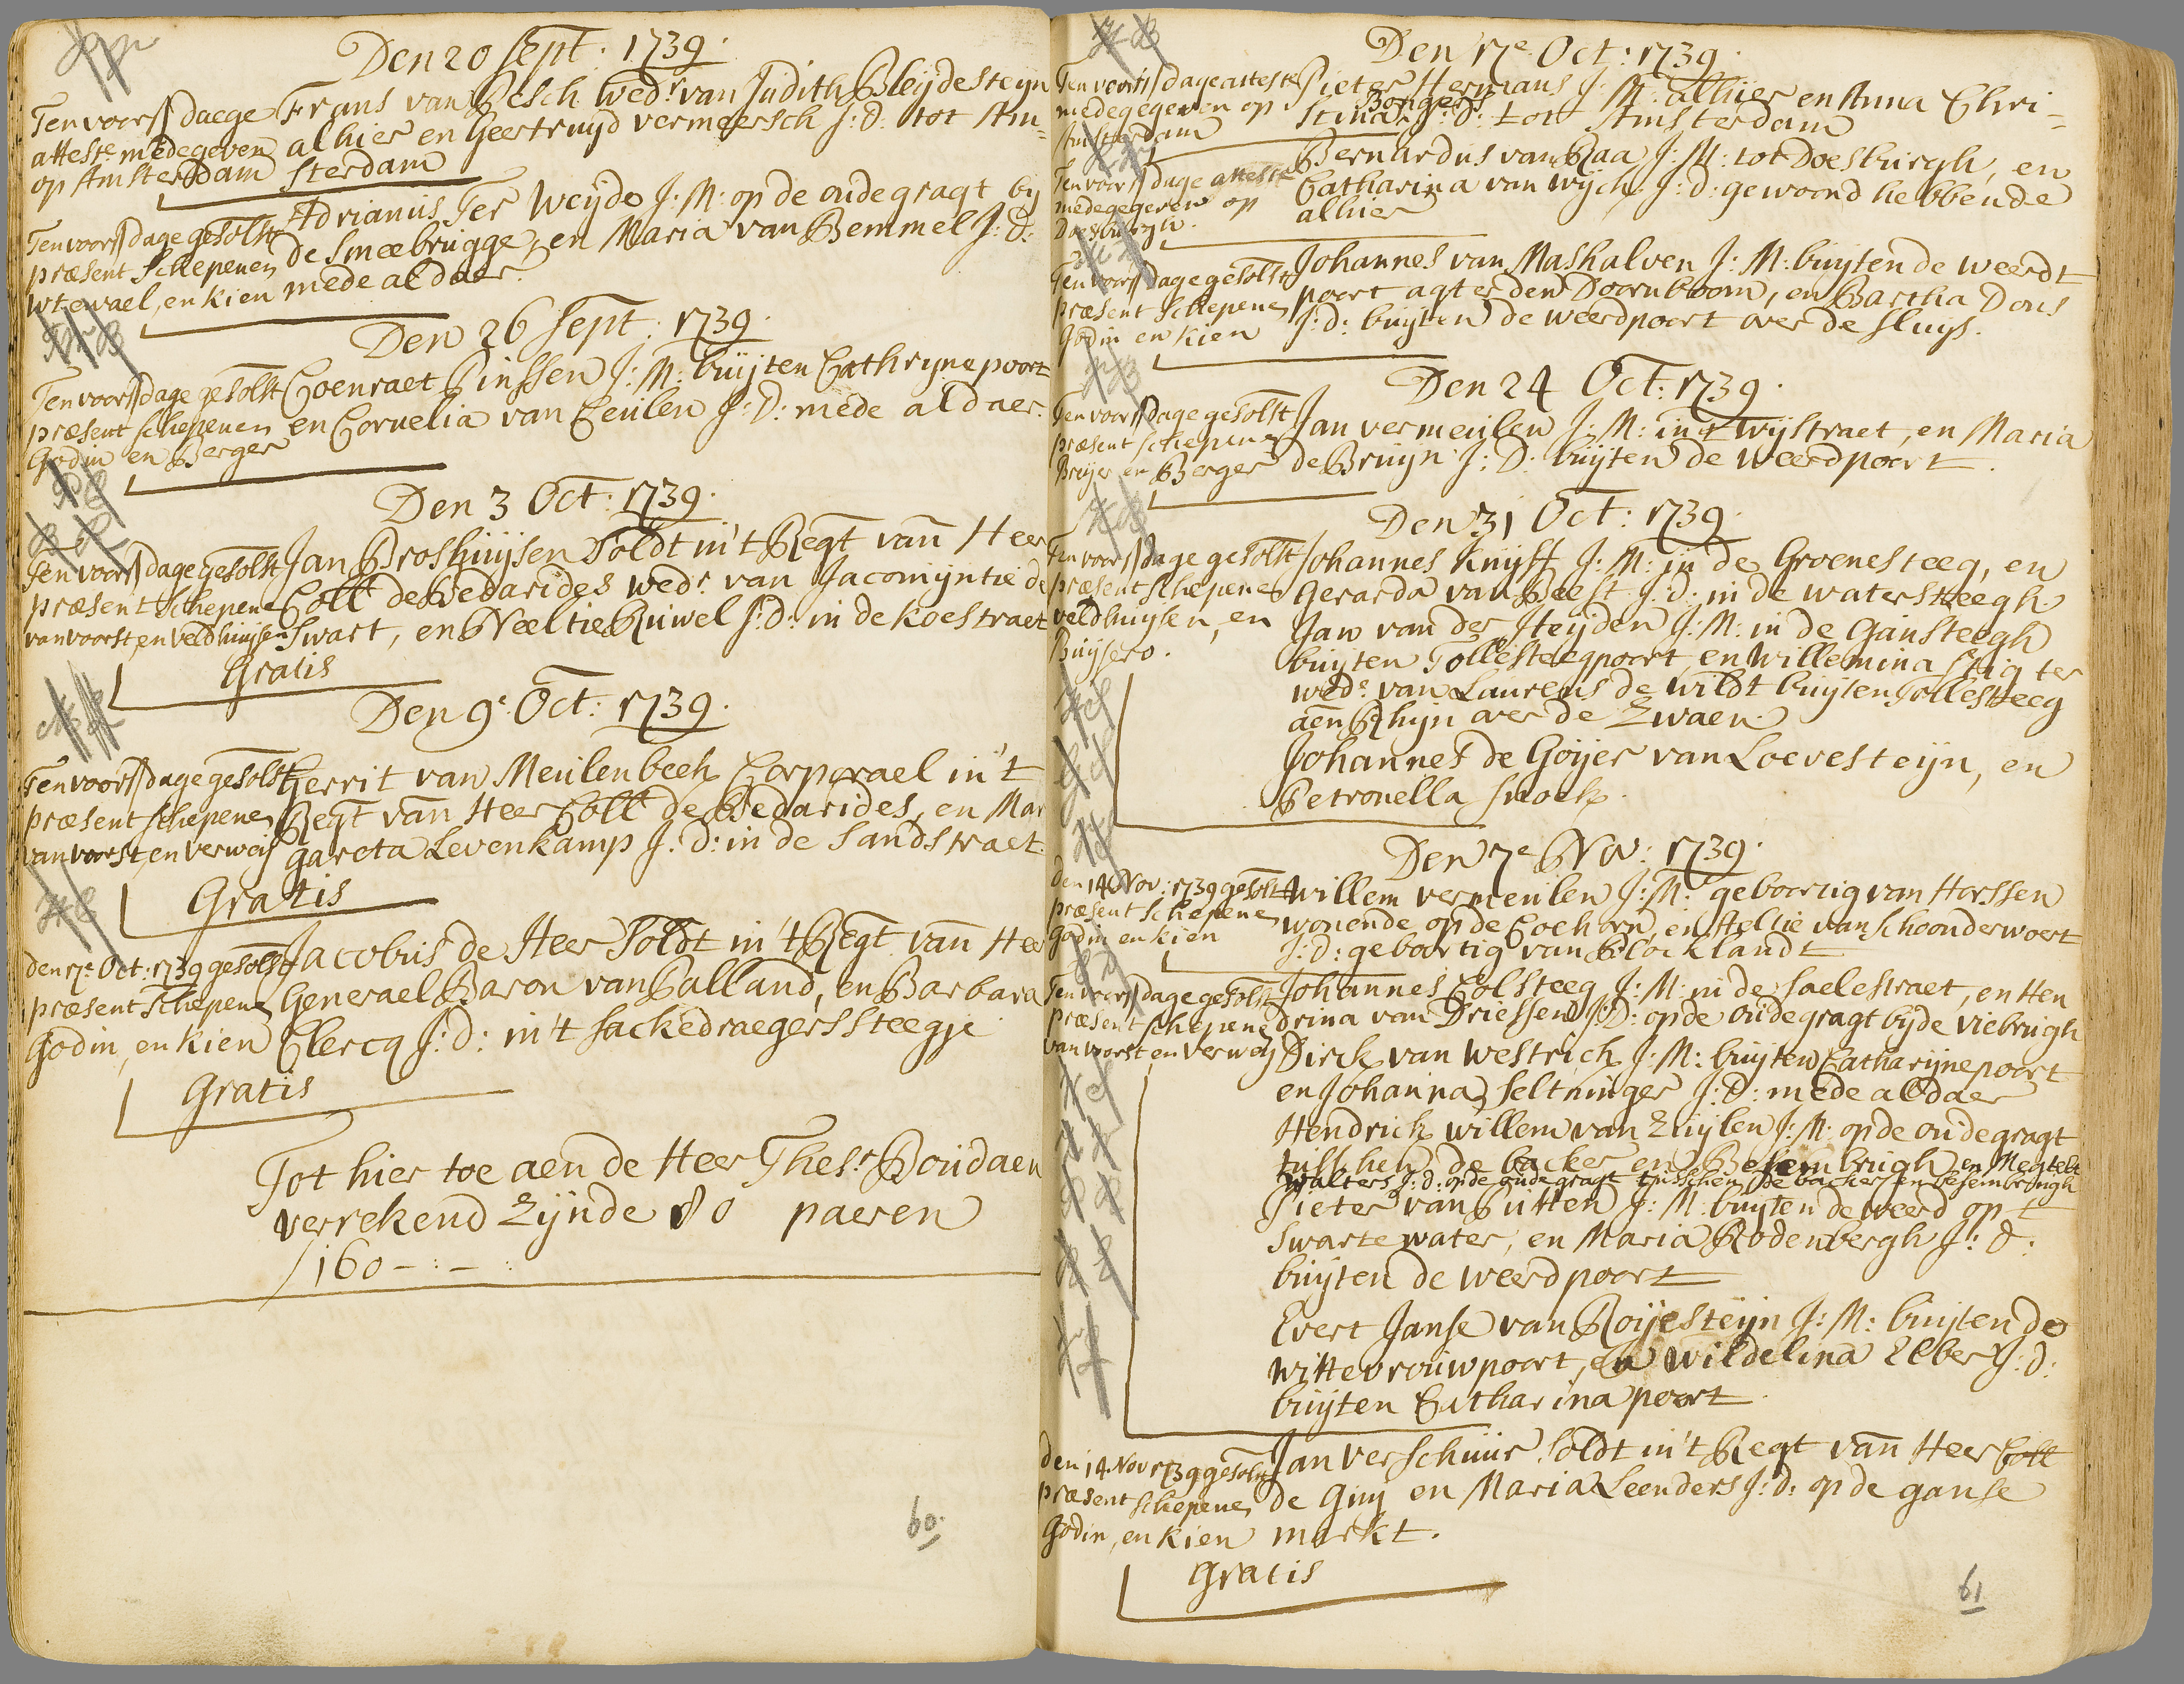 Den 20 Sept: 1739.
Ten voors dage
atteste medegegeven
op Amsterdam
Frans van Besch wedr van Judith Bleijdesteijn
alhier en Geertruijd vermeersch J: D: tot Am=
sterdam
Ten voors dage gesolst
præsent Schepenen
wtewael, en Kien
Adrianus Ter Weijde J: M: op de oudegragt bij
de Smeebrugge, en Maria van Bemmel J: D:
mede aldaer.
Den 26 Sept: 1739.
Ten voors dage gesolst
præsent schepenen
Godin en Berger
Coenraet Pinssen J: M: buijten Cathrijnepoort
en Cornelia van Ceulen J: D: mede aldaer.
Den 3 Oct: 1739.
Ten voors dage gesolst
præsent Schepene
van voorst, en veldhuijsen
Jan Broshuijsen Soldt in't Regt van Heer
Coll de Bedarides wedr van Jacomijntie de
Swart, en Neeltie Ruwel J: d: in de Koestraet
Gratis
Den 9e Oct: 1739.
Ten voors dage gesolst
præsent schepenen
van voorst, en verweij
Gerrit van Meulenbeek Corporael in't
Regt van Heer Coll de Bedarides, en Mar
gareta Levenkamp J: d: in de Sandstraet.
Gratis
den 17e Oct: 1739 gesolst
præsent Schepene
Godin, en Kien
Jacobus de Heer Soldt in't Regt van Heer
Generael Baron van Palland, en Barbara
Clercq J: d: in't sackedraegerssteegje
Gratis
Tot hier toe aen de Heer Thesr Boudaen
verrekend zijnde 80 paeren
f 160 - : - :
60.
Den 17e Oct: 1739.
Ten voors dage atteste
medegegeven op
Amsterdam
Pieter Hermans J: M: alhier en Anna Chri=
Bongers
stina J: D: tot Amsterdam
Ten voors dage atteste
medegegeven op
Doesburgh.
Bernardus van Raa J: M: tot Doesburgh, en
Catharina van Wijck J: d: gewoond hebbende
alhier
Ten voors dage gesolst
præsent Schepenen
Godin en Kien
Johannes van Maskalven J: M: buijten de weerdt
poort agter den Doornboom, en Bartha Dons
J: d: buijten de weerdpoort over de sluijs.
Den 24 Oct: 1739.
Ten voors dage gesolst
præsent schepene
Breijer en Berger
Jan vermeulen J: M: in't wijstraet, en Maria
de Bruijn J: D: buijten de weerdpoort.
Den 31 Oct: 1739.
Ten voors dage gesolst
præsent schepene
veldhuijsen, en
Buijsero.
Johannes Knijff J: M: in de Groenesteeg, en
Gerarda van Beest J: d: in de watersteegh.
Jan van der Heijden J: M: in de Gansteegh
buijten Tollesteegpoort, en Willemina Stigter
wede van Laurens de Wildt buijten Tollesteeg
aen Rhijn over de Zwaen.
Johannes de Goijer van Loevesteijn, en
Petronella snoek.
Den 7e Nov: 1739.
den 14 Nov: 1739 gesolst
præsent schepene
Godin en Kien
Willem vermeulen J: M: geboortig van Harssen
wonende op de Coehorn, en Aeltie van Schoonderwoert
J: d: geboortig van Blocklandt
Ten voors dage gesolst
præsent schepene
van voorst en verweij
Johannes Colsteeg J: M: in de Saelestraet, en Hen
drina van Driessen J: D: op de oudegragt bijde viebrugh
Dirck van Westrich J: M: buijten Catharijnepoort
en Johanna Seltninger J: D: mede aldaer
Hendrick willem van Zuijlen J: M. op de oudegragt
tusschen de backer en Besembrugh en Megtelt
Walters J: d: op de oudegragt tusschen de backer en besembrugh
Pieter van Putten J: M: buijten de weerd op 't
Swarte water, en Maria Rodenbergh J: d:
buijten de weerdpoort
Evert Janse van Roijesteijn J: M: buijten de
wittevrouwpoort, en Wildelina Elbers J: d:
buijten Catharina poort.
den 14. Nov 1739 gesolst
præsent schepene
Godin, en Kien
Jan Verschuur Soldt in't Regt van Heer Coll
de Guij en Maria Leenders J: d: op de ganse
markt.
Gratis
61